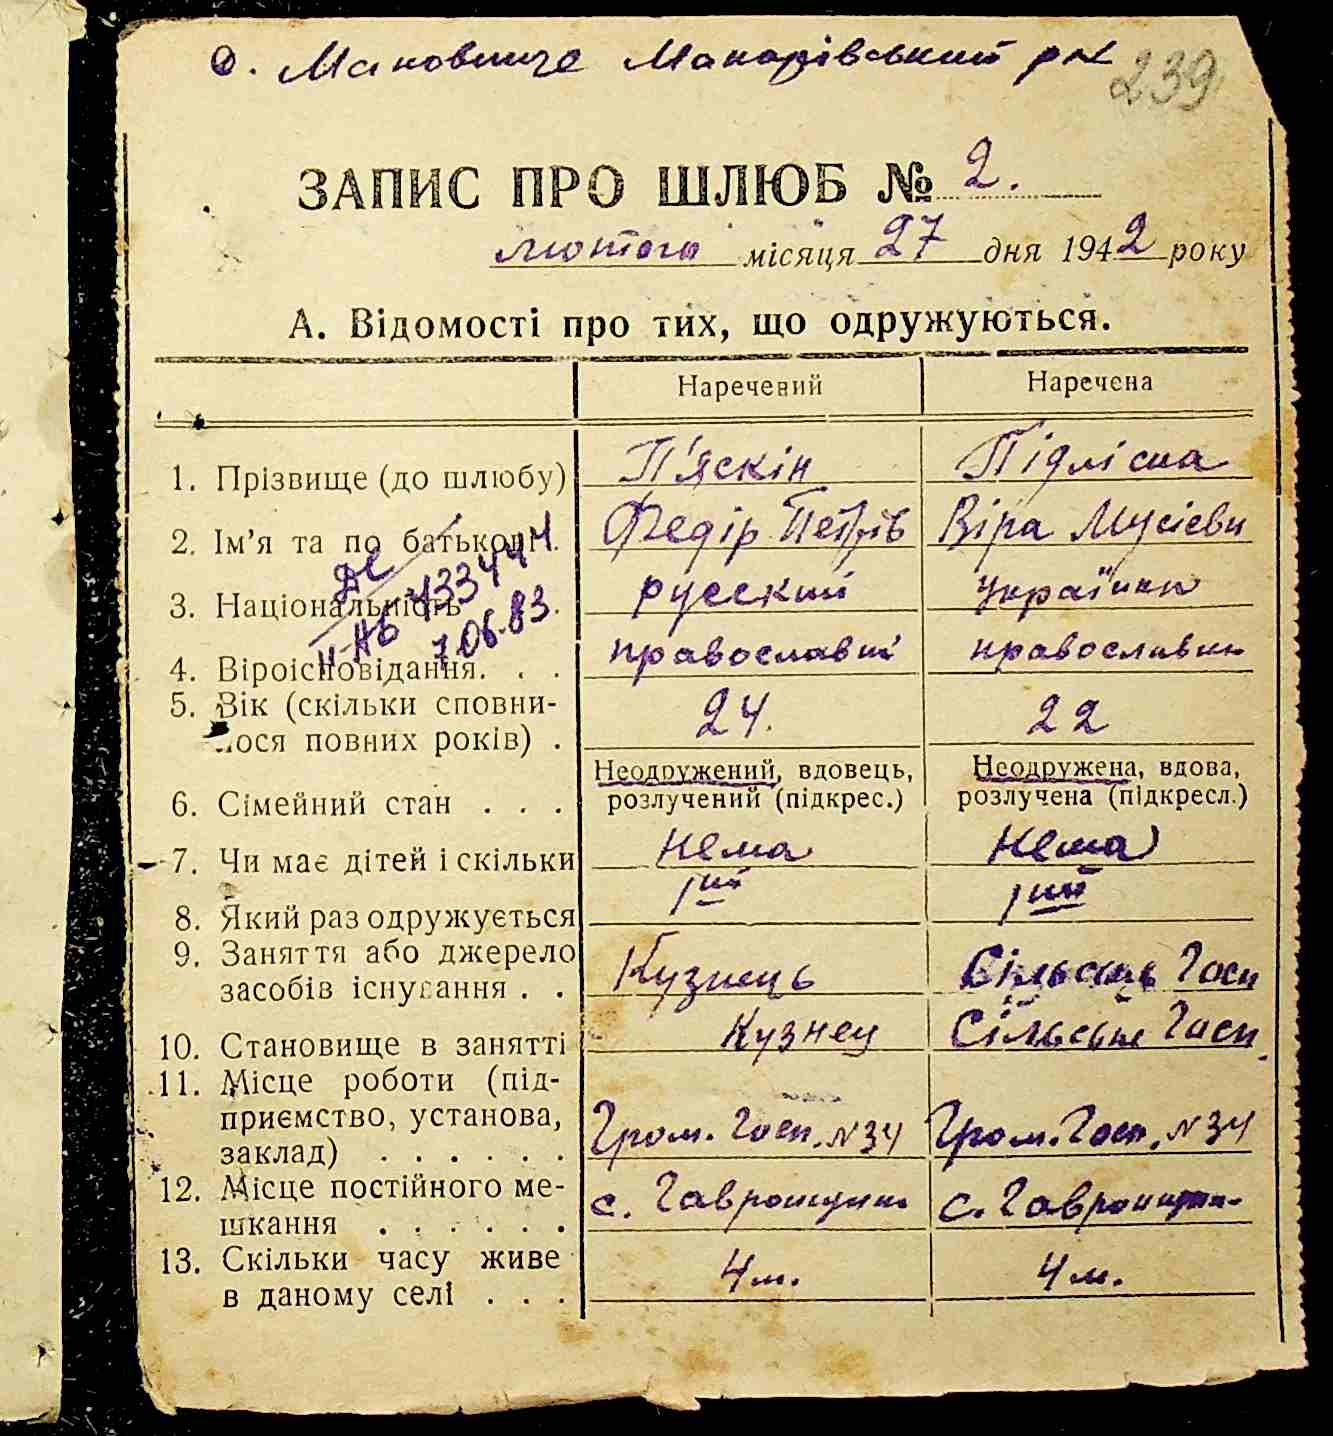 с. Маковище Макарівський р-н
239
ЗАПИС ПРО ШЛЮБ № 2.
лютого місяця 27 дня 1942 року
А. Відомості про тих, що одружуються.
Наречений Наречена
1. Прізвище (до шлюбу) П'яскін Підлісна
2. Ім'я та по батькові. Федір Петрів Віра Мусієвн
3. Національність . русский українка
ІІ-АБ 433444
7.06.83
4. Віроісповідання. . . православний православна
5. Вік (скільки сповни-
лося повних років) . 24. 22
6. Сімейний стан . . . Неодружений, вдовець, розлучений (підкрес.) Неодружена, вдова, розлучена (підкресл.)
7. Чи має дітей і скільки нема нема
8. Який раз одружується 1ий 1ий
9. Заняття або джерело
засобів існування . . Кузнець Сільське Госп
10. Становище в занятті Кузнец Сільське Госп.
11. Місце роботи (під-
приємство, установа,
заклад) . . . . . . Гром. Госп. №34 Гром. Госп. №34
12. Місце постійного ме-
шкання . . . . . . с. Гавронщина с. Гавронщина
13. Скільки часу живе
в даному селі . . . 4 м. 4 м.